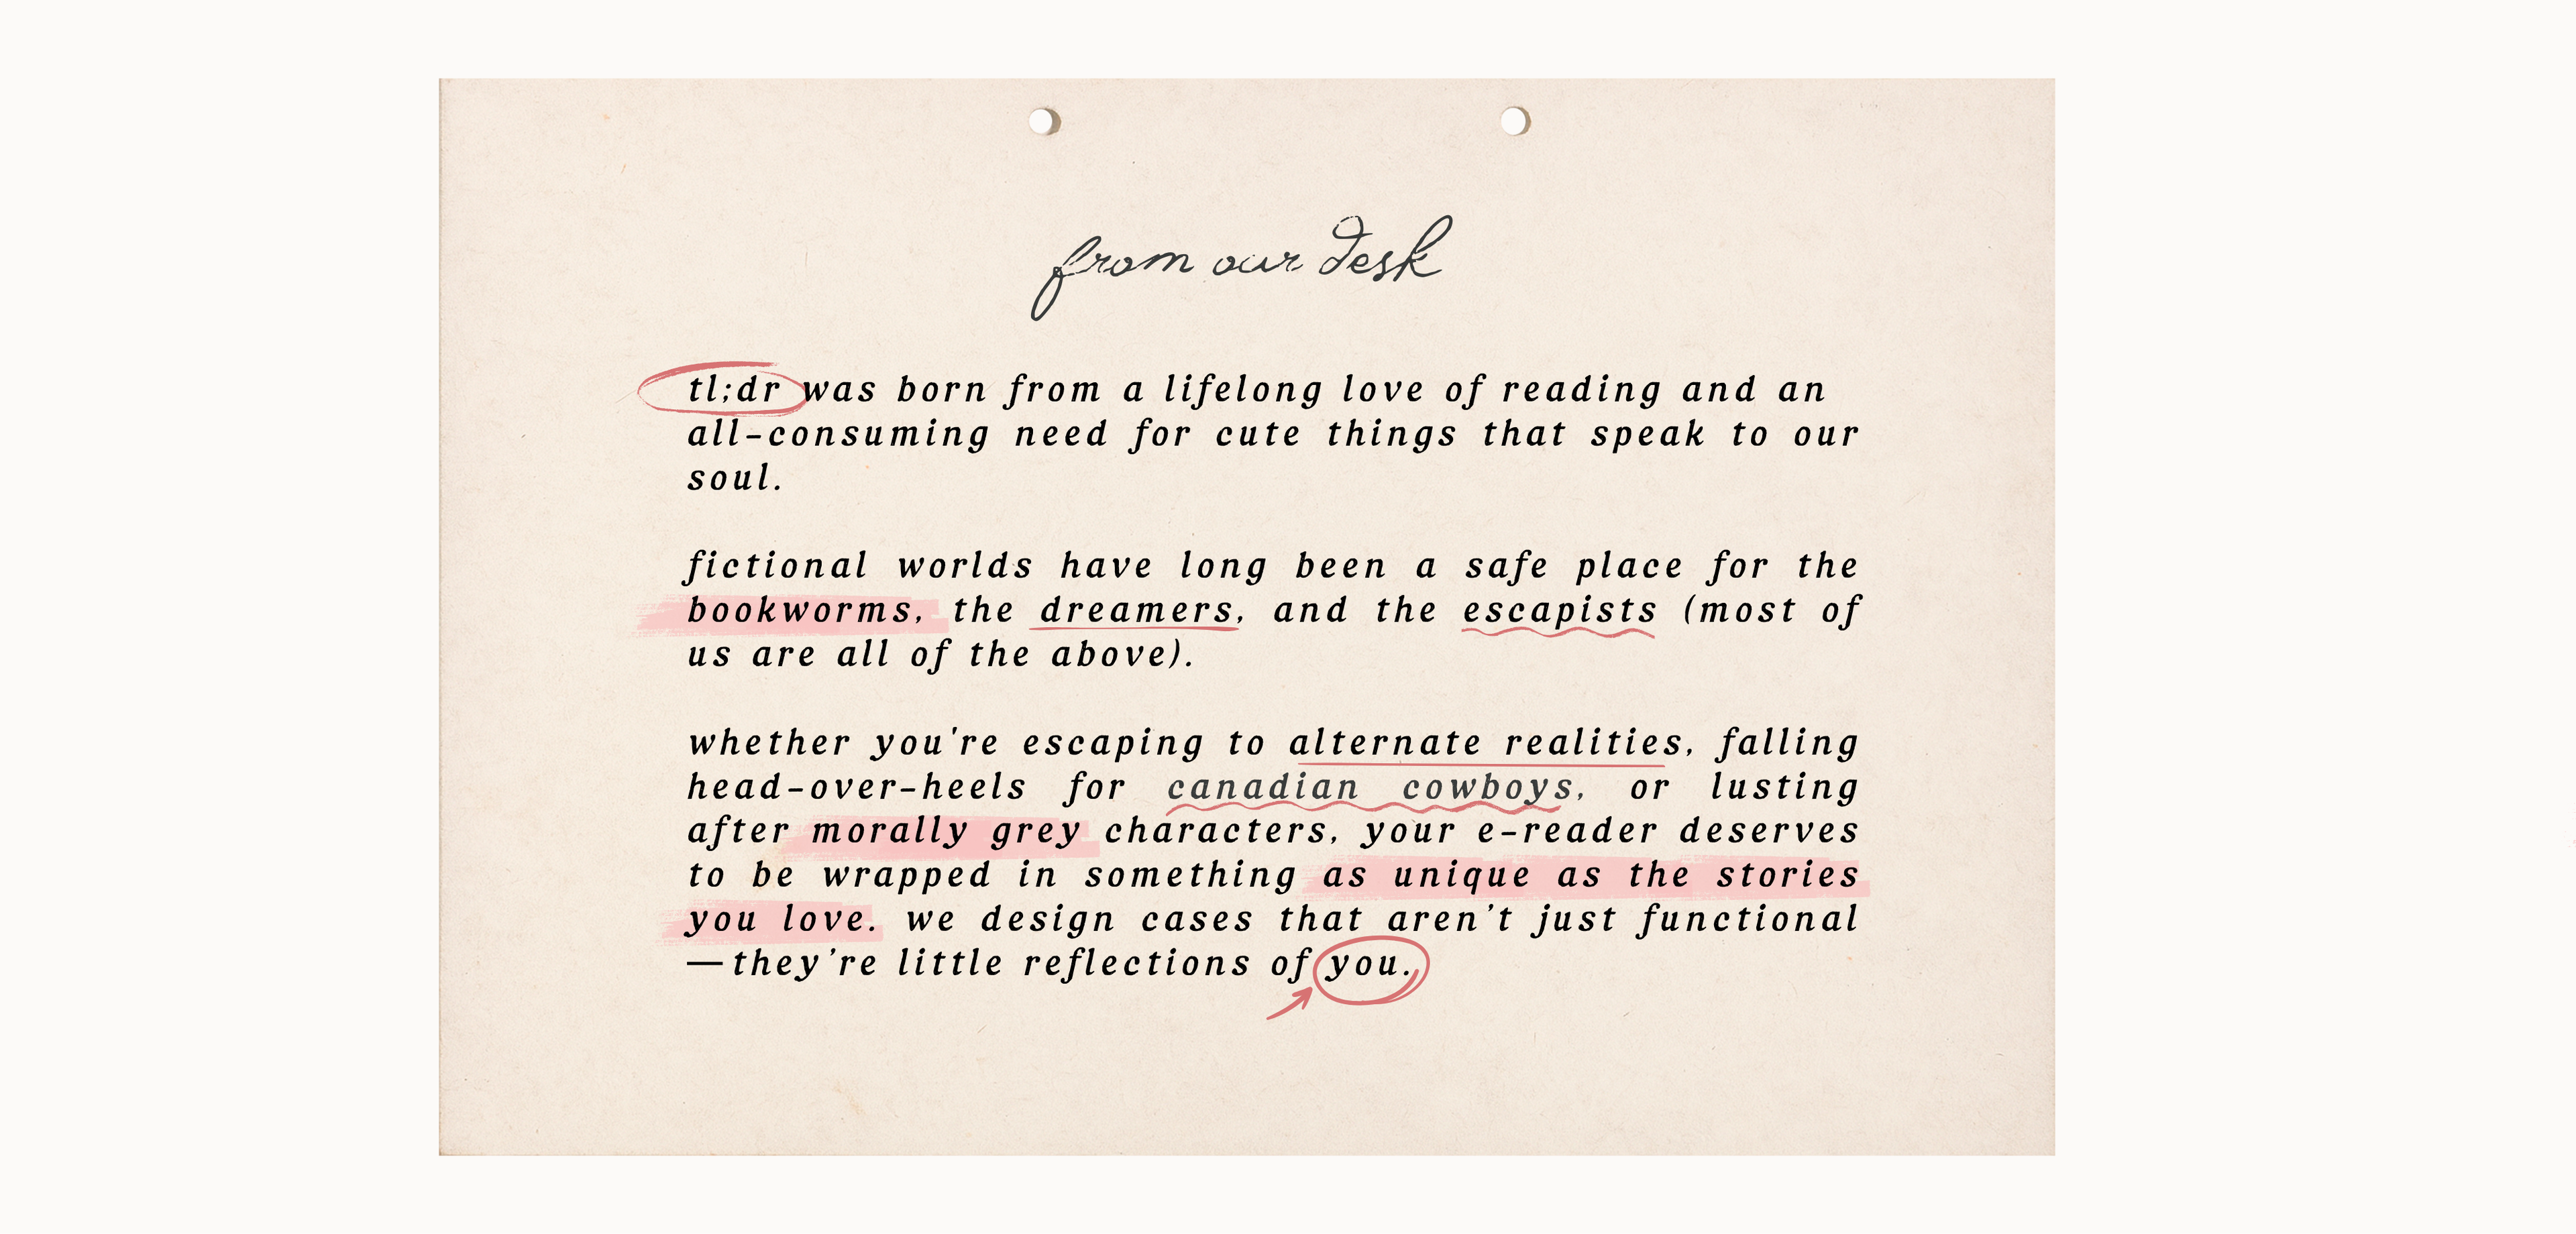 from our desk
tl;dr was born from a lifelong love of reading and an
all-consuming need for cute things that speak to our
soul.
fictional worlds have long been a safe place for the
bookworms, the dreamers, and the escapists (most of
us are all of the above).
whether you're escaping to alternate realities, falling
head-over-heels for canadian cowboys, or lusting
after morally grey characters, your e-reader deserves
to be wrapped in something as unique as the stories
you love. we design cases that aren’t just functional
—they’re little reflections of you.